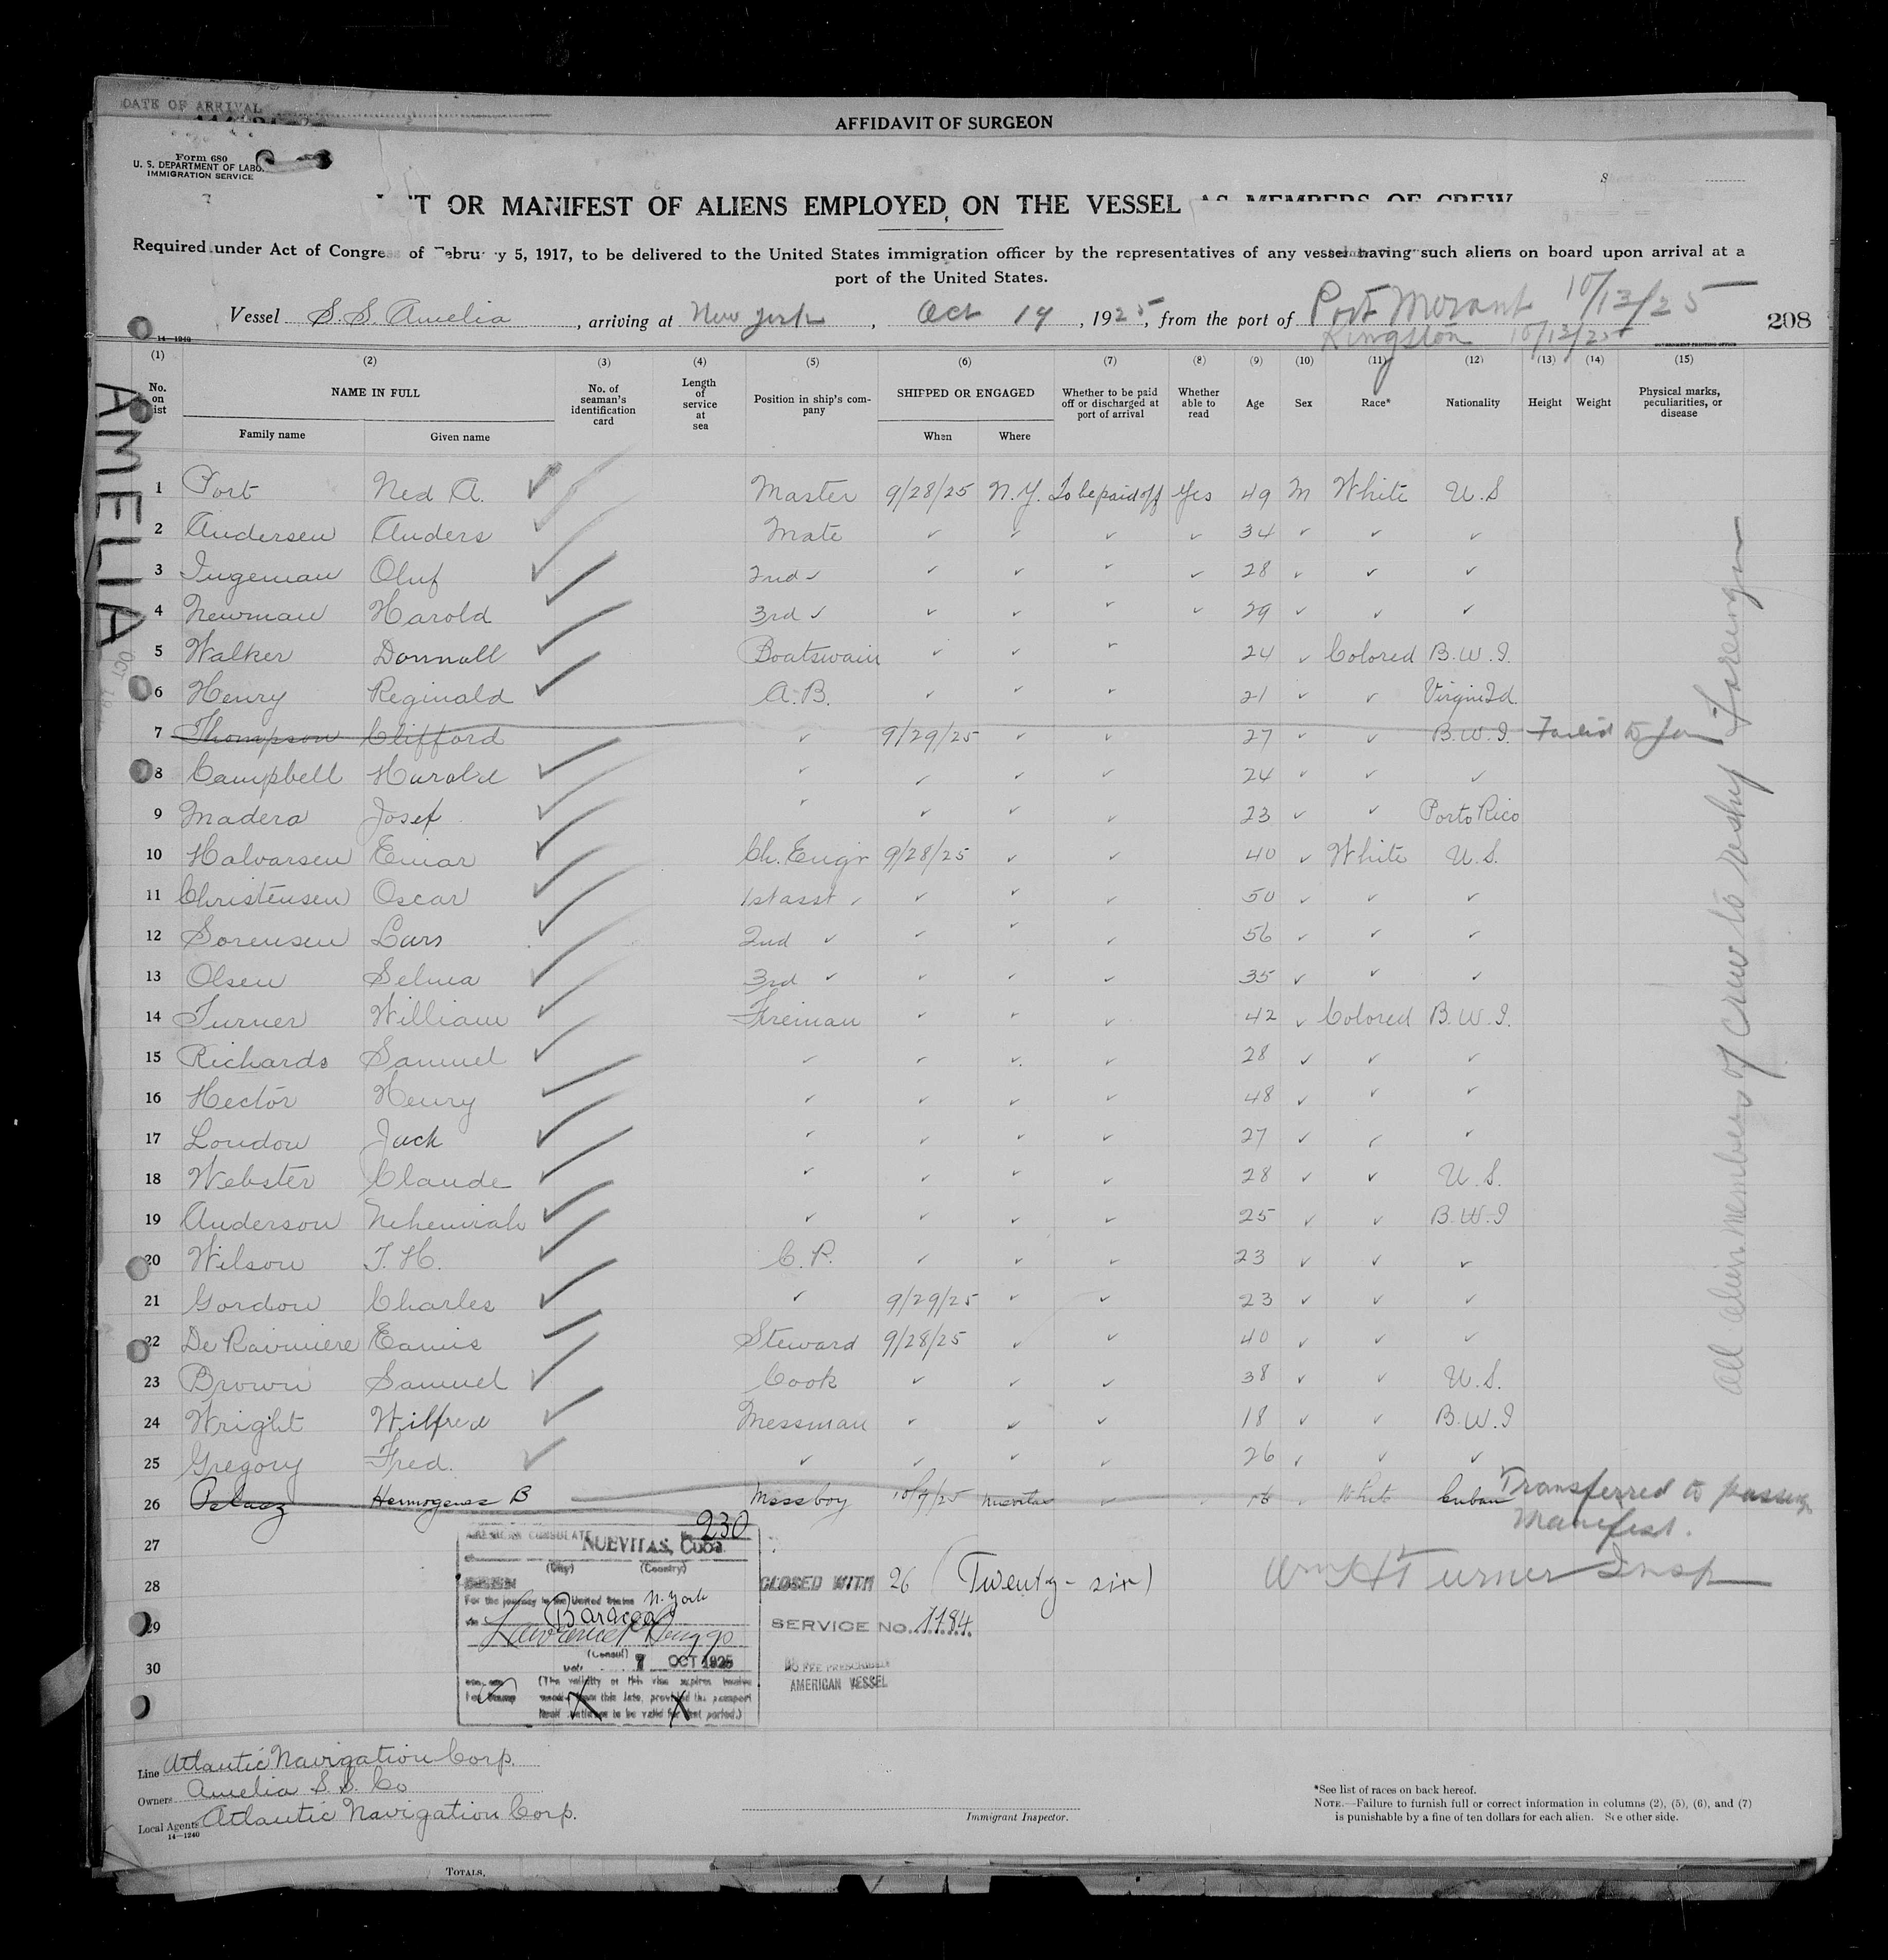 DATE OF ARRIVAL
AFFIDAVIT OF SURGEON
Form 680
U. S. DEPARTMENT OF LABO
IMMIGRATION SERVICE
T OR MANIFEST OF ALIENS EMPLOYED ON THE VESSEL AS MEMBERS OF CREW
Required under Act of Congress of February 5, 1917, to be delivered to the United States immigration officer by the representatives of any vessel having such aliens on board upon arrival at a
port of the United States.
Vessel S.S. Amelia, arriving at New York, Oct 19, 1925, from the port of Port Morant 10/13/25
Kingston 10/13/25
208
14—1240
AMELIA
(1) (2) (3) (4) (5) (6) (7) (8) (9) (10) (11) (12) (13) (14) (15)
No. on ist NAME IN FULL No. of seaman's identification card Length of service at sea Position in ship's company SHIPPED OR ENGAGED Whether to be paid off or discharged at port of arrival Whether able to read Age Sex Race* Nationality Height Weight Physical marks, peculiarities, or disease
Family name Given name When Where
1 Port Ned A. ✓ Master 9/28/25 N.Y. To be paid off Yes 49 M White U.S
2 Andersen Anders ✓ Mate ✓ ✓ ✓ ✓ 34 ✓ ✓ ✓
3 Ingeman Oluf ✓ 2nd ✓ ✓ ✓ ✓ ✓ 28 ✓ ✓ ✓
4 Newman Harold ✓ 3rd ✓ ✓ ✓ ✓ ✓ 29 ✓ ✓ ✓
5 Walker Donnall ✓ Boatswain ✓ ✓ ✓ 24 ✓ Colored B.W.I.
6 Henry Reginald ✓ A.B. ✓ ✓ ✓ 21 ✓ ✓ Virgin Id.
7 Thompson Clifford ✓ 9/29/25 ✓ ✓ 27 ✓ ✓ B.W.I. Failed to Join
8 Campbell Harold ✓ ✓ ✓ ✓ ✓ 24 ✓ ✓ ✓
9 Madera Josef ✓ ✓ ✓ ✓ ✓ 23 ✓ ✓ Porto Rico
10 Halvarsen Einar ✓ Ch. Engr 9/28/25 ✓ ✓ 40 ✓ White U.S.
11 Christensen Oscar ✓ 1st asst ✓ ✓ ✓ ✓ 50 ✓ ✓ ✓
12 Sorensen Lars ✓ 2nd ✓ ✓ ✓ ✓ 56 ✓ ✓ ✓
13 Olsen Selma ✓ 3rd ✓ ✓ ✓ ✓ 35 ✓ ✓ ✓
14 Turner William ✓ Fireman ✓ ✓ ✓ 42 ✓ Colored B.W.I.
15 Richards Samuel ✓ ✓ ✓ ✓ ✓ 28 ✓ ✓ ✓
16 Hector Henry ✓ ✓ ✓ ✓ ✓ 48 ✓ ✓ ✓
17 London Jack ✓ ✓ ✓ ✓ ✓ 27 ✓ ✓ ✓
18 Webster Claude ✓ ✓ ✓ ✓ ✓ 28 ✓ ✓ U.S.
19 Anderson Nehemiah ✓ ✓ ✓ ✓ ✓ 25 ✓ ✓ B.W.I
20 Wilson T.H. ✓ C.P. ✓ ✓ ✓ 23 ✓ ✓ ✓
21 Gordon Charles ✓ ✓ 9/29/25 ✓ ✓ 23 ✓ ✓ ✓
22 De Raimiere Eamis ✓ Steward 9/28/25 ✓ ✓ 40 ✓ ✓ ✓
23 Brown Samuel ✓ Cook ✓ ✓ ✓ 38 ✓ ✓ U.S.
24 Wright Wilfred ✓ Messman ✓ ✓ ✓ 18 ✓ ✓ B.W.I
25 Gregory Fred. ✓ ✓ ✓ ✓ ✓ 26 ✓ ✓ ✓
26 Pelaez Hermogenes B Messboy 10/7/25 Nuevitas ✓ 16 White Cuban Transferred to passenger
Manifest.
27
28
29
30
All alien members of crew to reship foreign
Wm H Turner Insp
AMERICAN CONSULATE No. 230
NUEVITAS, Cuba
(City) (Country)
For the journey to the United States N. York
via Baracoa
(Consul)
Date 7 OCT 1925
(The validity of this visa expires twelve
months from this date, provided the passport
itself continues to be valid for that period.)
CLOSED WITH 26 (Twenty-six)
SERVICE NO. 1184
NO FEE PRESCRIBED
AMERICAN VESSEL
Line Atlantic Navigation Corp.
Owners Amelia S.S. Co
Local Agents Atlantic Navigation Corp.
14—1240
Immigrant Inspector.
*See list of races on back hereof.
NOTE.—Failure to furnish full or correct information in columns (2), (5), (6), and (7)
is punishable by a fine of ten dollars for each alien. See other side.
TOTALS,